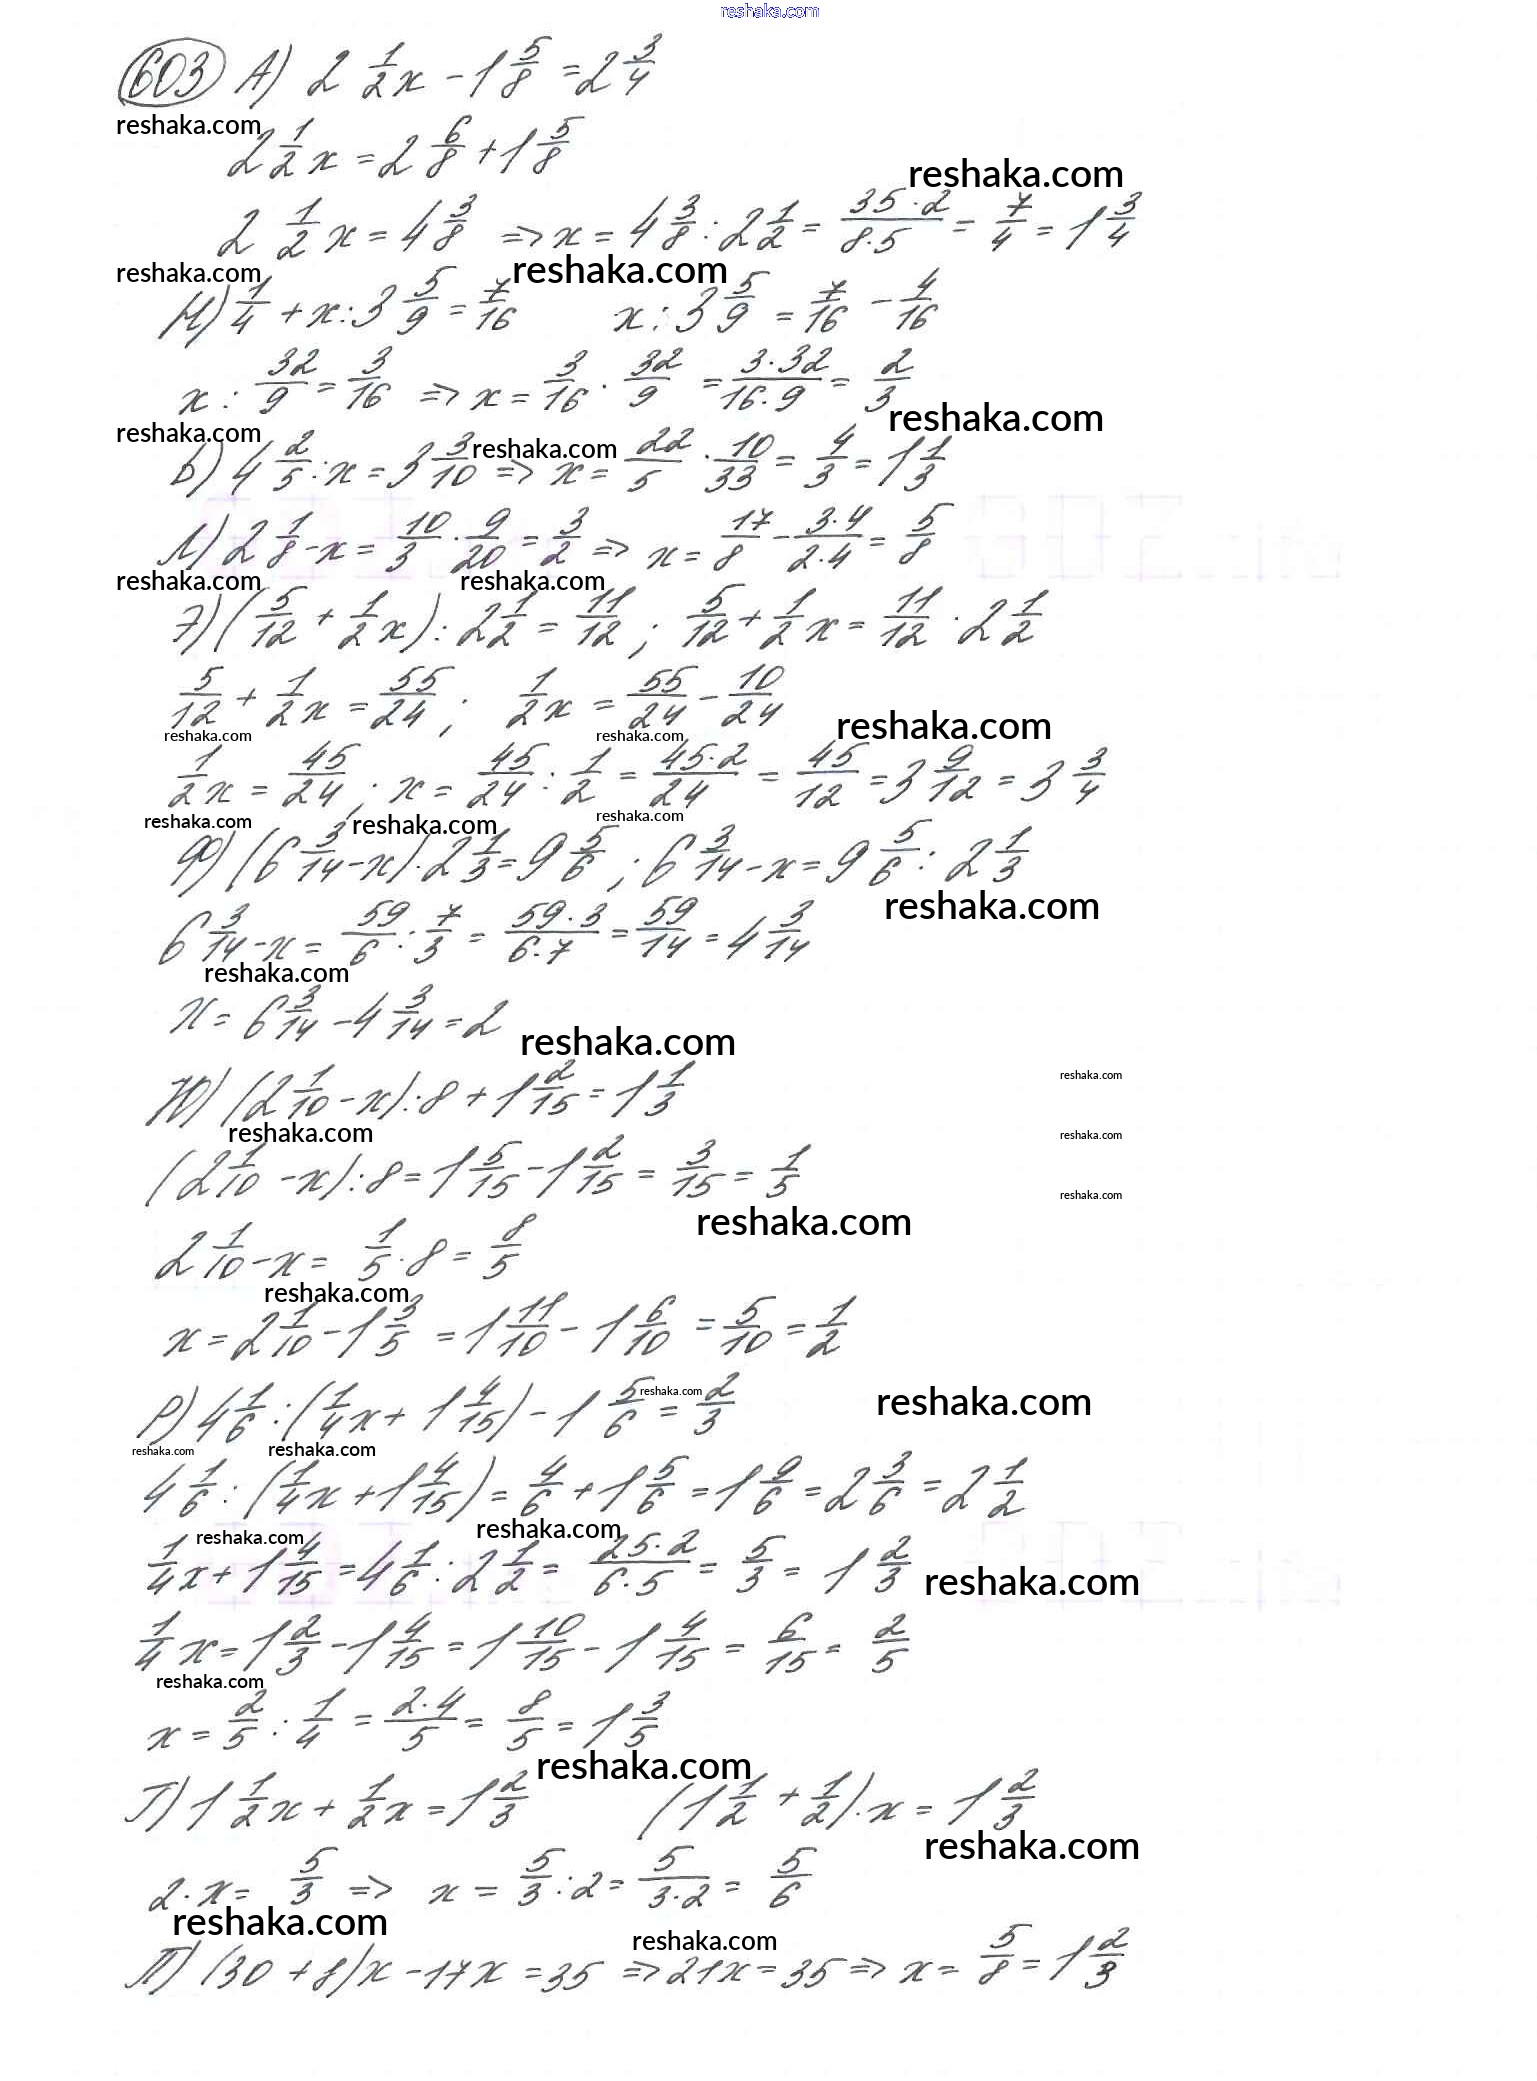 reshaka.com
603 А) 2 1/2 x - 1 5/8 = 2 3/4
reshaka.com
2 1/2 x = 2 6/8 + 1 5/8
reshaka.com
2 1/2 x = 4 3/8 => x = 4 3/8 : 2 1/2 = 35·2/8·5 = 7/4 = 1 3/4
reshaka.com reshaka.com
М) 1/4 + x : 3 5/9 = 7/16 x : 3 5/9 = 7/16 - 4/16
x : 32/9 = 3/16 => x = 3/16 · 32/9 = 3·32/16·9 = 2/3
reshaka.com
reshaka.com reshaka.com
Ь) 4 2/5 : x = 3 3/10 => x = 22/5 · 10/33 = 4/3 = 1 1/3
Л) 2 1/8 - x = 10/3 · 9/20 = 3/2 => x = 17/8 - 3·4/2·4 = 5/8
reshaka.com reshaka.com
7) (5/12 + 1/2 x) : 2 1/2 = 11/12 ; 5/12 + 1/2 x = 11/12 · 2 1/2
5/12 + 1/2 x = 55/24 ; 1/2 x = 55/24 - 10/24
reshaka.com reshaka.com reshaka.com
1/2 x = 45/24 ; x = 45/24 : 1/2 = 45·2/24 = 45/12 = 3 9/12 = 3 3/4
reshaka.com reshaka.com reshaka.com
Ф) (6 3/14 - x) · 2 1/3 = 9 5/6 ; 6 3/14 - x = 9 5/6 : 2 1/3
reshaka.com
6 3/14 - x = 59/6 : 7/3 = 59·3/6·7 = 59/14 = 4 3/14
reshaka.com
x = 6 3/14 - 4 3/14 = 2
reshaka.com
reshaka.com
Ю) (2 1/10 - x) : 8 + 1 2/15 = 1 1/3
reshaka.com reshaka.com
(2 1/10 - x) : 8 = 1 5/15 - 1 2/15 = 3/15 = 1/5
reshaka.com
reshaka.com
2 1/10 - x = 1/5 · 8 = 8/5
reshaka.com
x = 2 1/10 - 1 3/5 = 1 11/10 - 1 6/10 = 5/10 = 1/2
reshaka.com reshaka.com
Р) 4 1/6 : (1/4 x + 1 4/15) - 1 5/6 = 2/3
reshaka.com reshaka.com
4 1/6 : (1/4 x + 1 4/15) = 4/6 + 1 5/6 = 1 9/6 = 2 3/6 = 2 1/2
reshaka.com reshaka.com
1/4 x + 1 4/15 = 4 1/6 : 2 1/2 = 25·2/6·5 = 5/3 = 1 2/3
reshaka.com
1/4 x = 1 2/3 - 1 4/15 = 1 10/15 - 1 4/15 = 6/15 = 2/5
reshaka.com
x = 2/5 : 1/4 = 2·4/5 = 8/5 = 1 3/5
reshaka.com
Т) 1 1/2 x + 1/2 x = 1 2/3 (1 1/2 + 1/2) · x = 1 2/3
reshaka.com
2 · x = 5/3 => x = 5/3 : 2 = 5/3·2 = 5/6
reshaka.com reshaka.com
П) (30 + 8) x - 17x = 35 => 21x = 35 => x = 5/8 = 1 2/3